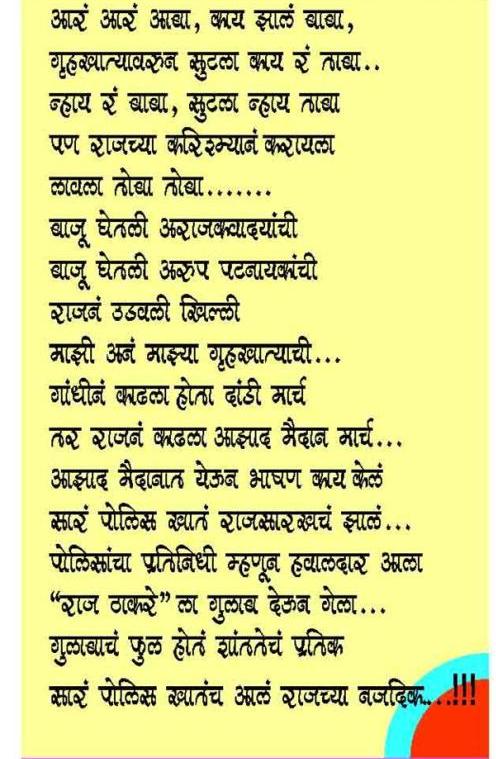 आरं आरं आबा, काय झालं बाबा,
गृहखात्यावरुन सुटला काय रं ताबा..
न्हाय रं बाबा, सुटला न्हाय ताबा
पण राजच्या करिश्म्यानं करायला
लावला तोबा तोबा.......
बाजू घेतली अराजकवादयांची
बाजू घेतली अरुप पटनायकांची
राजनं उडवली खिल्ली
माझी अनं माझ्या गृहखात्याची...
गांधीनं काढला होता दांडी मार्च
तर राजनं काढला आझाद मैदान मार्च...
आझाद मैदानात येऊन भाषण काय केलं
सारं पोलिस खातं राजसारखचं झालं...
पोलिसांचा प्रतिनिधी म्हणून हवालदार आला
“राज ठाकरे” ला गुलाब देऊन गेला...
गुलाबाचं फुल होतं शांततेचं प्रतिक
सारं पोलिस खातंच आलं राजच्या नजदिक....!!!